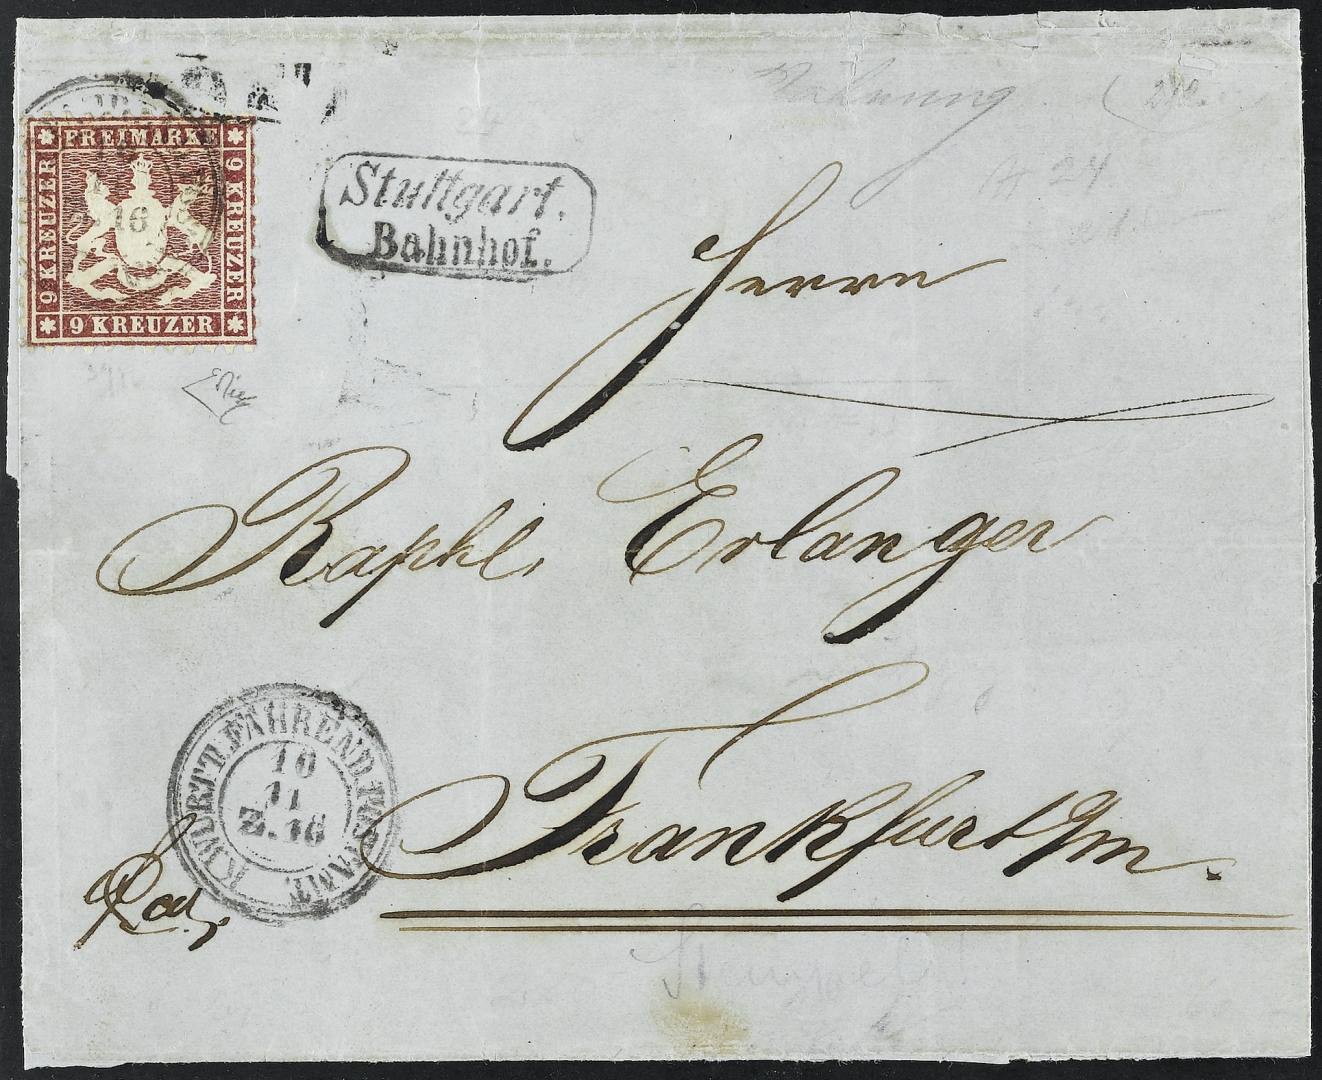 FREIMARKE
9 KREUZER
9 KREUZER
9 KREUZER
16
Stuttgart.
Bahnhof.
24
A 24
Herrn
Raphl. Erlanger
Frankfurt a/m.
K. WÜRTT. FAHREND. POSTAMT.
10
11
Z. 16
Stempel!